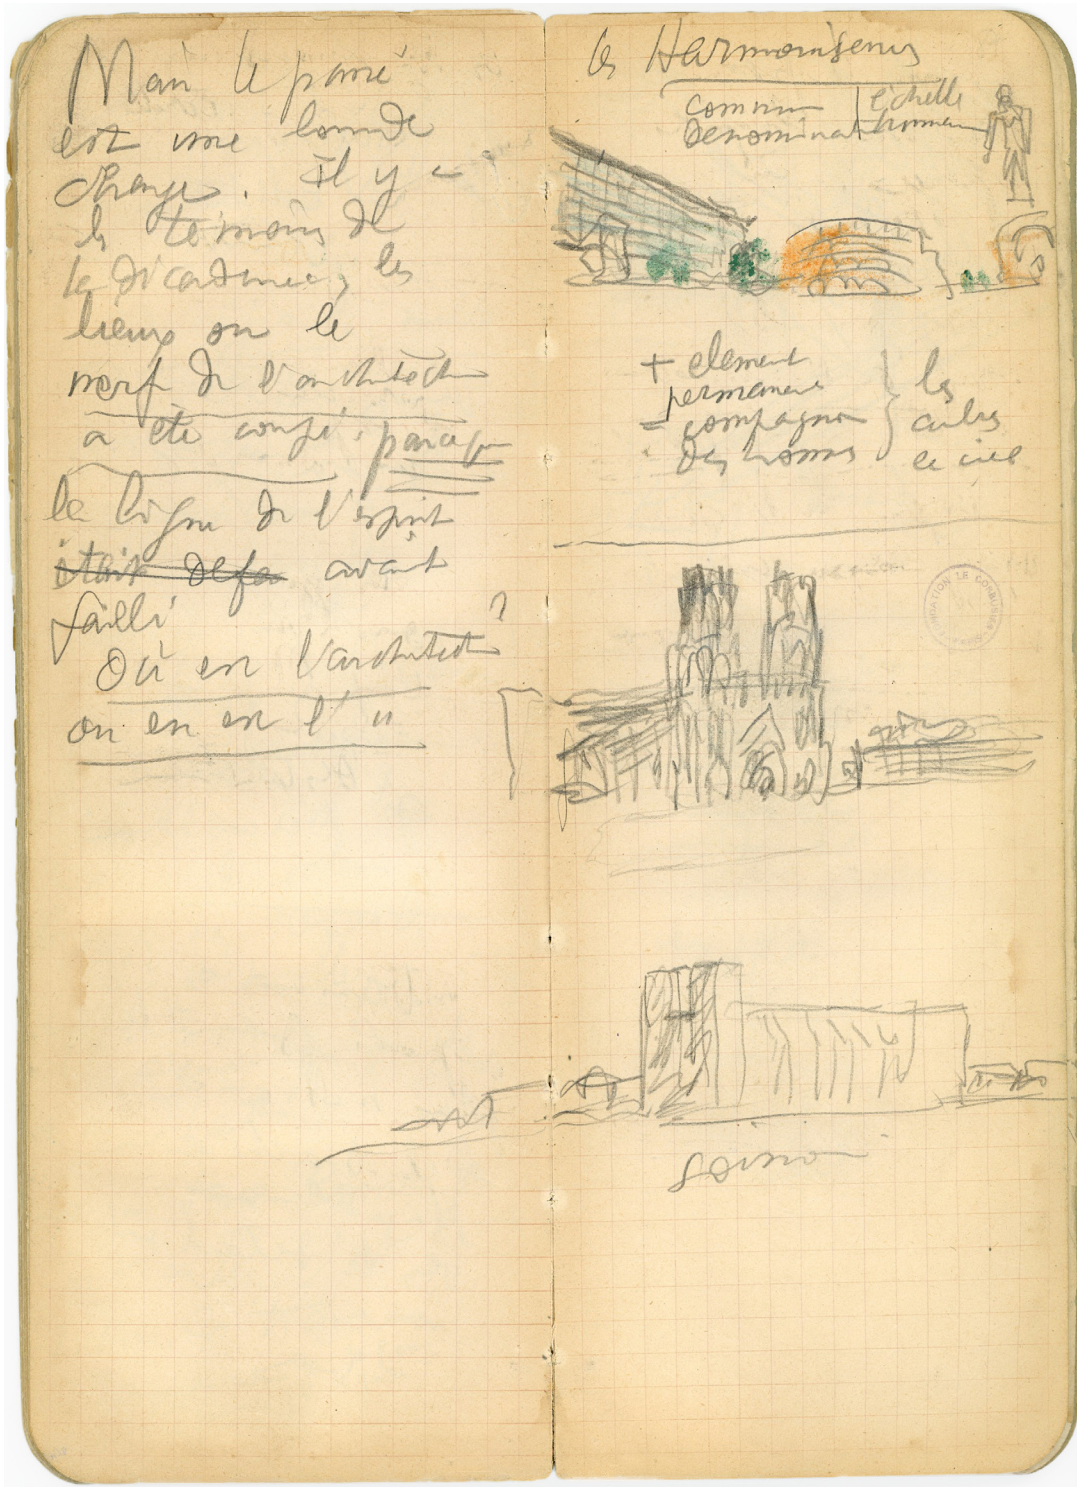 Mais le passé
est une lourde
charge. Il y a
les témoins de
la décadence, les
lieux ou le
nerf de l'architect
a été coupé. parceque
la ligne de l'esprit
était defa avait
failli
Où en l'architect ?
ou en est l' "
les Harmonisenus
commun
denominat
l'échelle
humain
+ element
permanent
= compagnon
des hommes
les
arbres
le ciel
FONDATION LE CORBUSIER